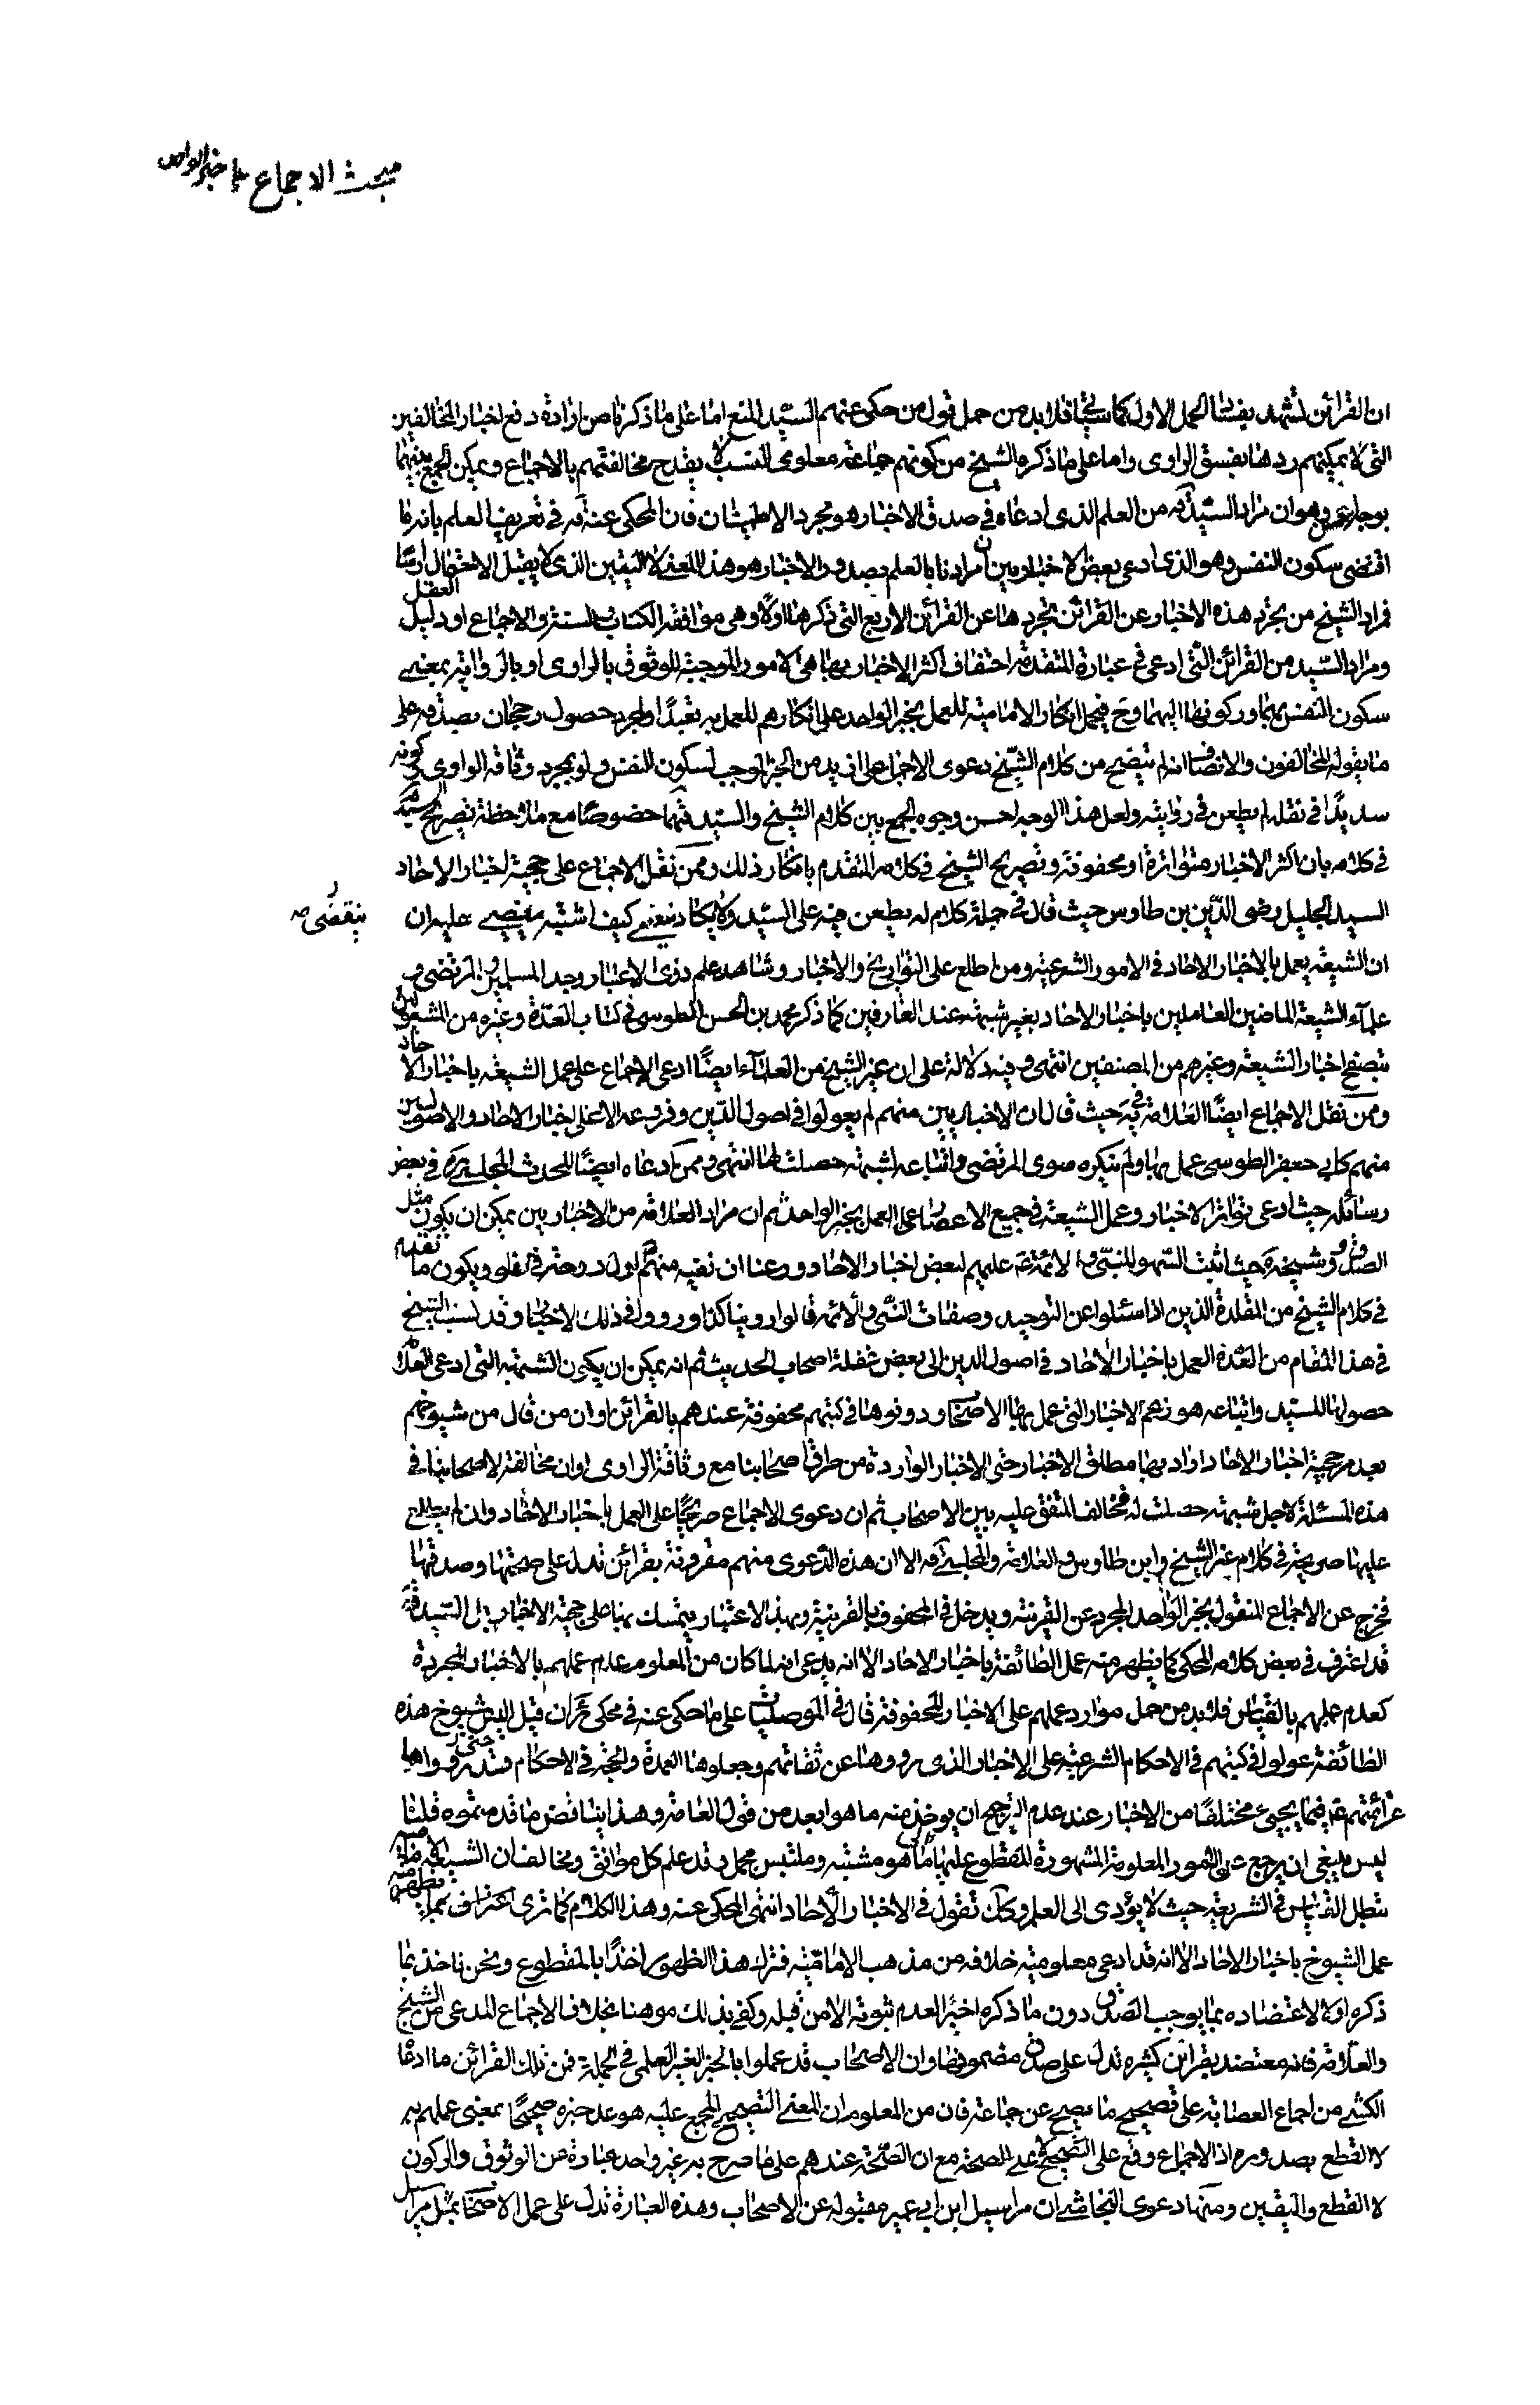 مبحث الاجماع على خبر الواحد
ان القرائن تشهد بفساد الحمل الاول كما سيجئ فلا بد من حمل قول من حكى عنهم السيد المنع اما على ما ذكرنا من ارادة دفع اخبار المخالفين
التى لا يمكنهم ردها بفسق الراوى واما على ما ذكره الشيخ من كونهم جماعة معلومى النسب لا يقدح مخالفتهم بالاجماع ويمكن الجمع بينهما
بوجه وهو ان مراد السيد قده من العلم الذى ادعاه فى صدق الاخبار هو مجرد الاطمينان فان المحكى عنه قده فى تعريف العلم بانه ما
اقتضى سكون النفس وهو الذى ادعى بعض الاخباريين ان مرادنا بالعلم بصدور الاخبار هو هذا المعنى لا اليقين الذى لا يقبل الاحتمال راسا
فمراد الشيخ من تجرد هذه الاخبار عن القرائن تجردها عن القرائن الاربع التى ذكرها اولا وهى موافقة الكتاب والسنة والاجماع او دليل العقل
ومراد السيد من القرائن التى ادعى فى عبارة المتقدمة احتفاف اكثر الاخبار بها هى الامور الموجبة للوثوق بالراوى او بالرواية بمعنى
سكون النفس بهما وركونها اليهما وح فيحمل انكار الامامية للعمل بخبر الواحد على انكارهم للعمل به تعبدا او لمجرد حصول رجحان بصدقه على
ما يقوله المخالفون والانصاف انه لم يتضح من كلام الشيخ دعوى الاجماع على ازيد من الخبر الموجب لسكون النفس ولو بمجرد وثاقة الراوى وكونه
سديدا فى نقله لم يطعن فى روايته ولعل هذا الوجه احسن وجوه الجمع بين كلام الشيخ والسيد قدهما خصوصا مع ملاحظة تصريح السيد قده
فى كلامه بان اكثر الاخبار متواترة او محفوفة وتصريح الشيخ فى كلامه المتقدم بانكار ذلك وممن نقل الاجماع على حجية اخبار الاحاد
السيد الجليل رضى الدين بن طاوس حيث قال فى جملة كلام له يطعن فيه على السيد ولا يكاد تعجبى ينقضى كيف اشتبه عليه ان
ان الشيعة يعمل بالاخبار الاحاد فى الامور الشرعية ومن اطلع على التواريخ والاخبار وشاهد عمل ذوى الاعتبار وجد المسلمين والمرتضى و
علماء الشيعة الماضين العاملين باخبار الاحاد بغير شبهة عند العارفين كما ذكر محمد بن الحسن الطوسى فى كتاب العدة وغيره من المشغولين
بتصفح اخبار الشيعة وغيرهم من المصنفين انتهى وفيه دلالة على ان غير الشيخ من العلماء ايضا ادعى الاجماع على عمل الشيعة باخبار الاحاد
وممن نقل الاجماع ايضا العلامة فى يه حيث قال ان الاخباريين منهم لم يعولوا فى اصول الدين وفروعه الا على اخبار الاحاد والاصوليين
منهم كابى جعفر الطوسى عمل بها ولم ينكره سوى المرتضى واتباعه لشبهة حصلت لها انتهى وممن ادعاه ايضا المحدث المجلسى قده فى بعض
رسائله حيث ادعى تواتر الاخبار وعمل الشيعة فى جميع الاعصار على العمل بخبر الواحد ثم ان مراد العلامة من الاخباريين يمكن ان يكون مثل
الصدوق وشيخه قده حيث اثبت السهو للنبى ص والائمة ع عليهم لبعض اخبار الاحاد وزعما ان نفيه منهم اول درجة فى الغلو ويكون ما تقدم
فى كلام الشيخ من المقلدة الذين اذا سئلوا عن التوحيد وصفات النبى والائمة قالوا روينا كذا ورووا فى ذلك الاخبار وقد نسب الشيخ
فى هذا المقام من العدة العمل باخبار الاحاد فى اصول الدين الى بعض غفلة اصحاب الحديث ثم انه يمكن ان يكون الشبهة التى ادعى العلامة
حصولها للسيد واتباعه هو زعم الاخبار التى عمل بها الاصحاب ودونوها فى كتبهم محفوفة عندهم بالقرائن او ان من قال من شيوخهم
بعدم حجية اخبار الاحاد اراد بها مطلق الاخبار حتى الاخبار الواردة من طرق اصحابنا مع وثاقة الراوى او ان مخالفته لاصحابنا فى
هذه المسئلة لاجل شبهة حصلت له فخالف المتفق عليه بين الاصحاب ثم ان دعوى الاجماع صريحا على العمل باخبار الاحاد وان لم يطلع
عليها صريحة فى كلام غير الشيخ وابن طاوس والعلامة والمجلسى قده الا ان هذه الدعوى منهم مقرونة بقرائن تدل على صحتها وصدقها
فخرج عن الاجماع المنقول بخبر الواحد المجرد عن القرينة ويدخل فى المحفوف بالقرينة وبهذا الاعتبار يتمسك بها على حجية الاخبار بل السيد قده
قد اعترف فى بعض كلامه المحكى كما يظهر منه عمل الطائفة باخبار الاحاد الا انه يدعى انه لما كان من المعلوم عدم عملهم بالاخبار المجردة
كعدم عملهم بالقياس فلا بد من حمل موارد عملهم على الاخبار المحفوفة قال فى الموصليات على ما حكى عنه فى محكى ئر ان قيل اليس شيوخ هذه
الطائفة عولوا فى كتبهم فى الاحكام الشرعية على الاخبار الذى رووها عن ثقاتهم وجعلوها العمدة والحجة فى الاحكام حتى رووا
عن ائمتهم ع فيما يجئ مختلفا من الاخبار عند عدم الترجيح ان يؤخذ منه ما هو ابعد من قول العامة وهذا يناقض ما قدمتموه قلنا
ليس ينبغى ان يرجع عن الامور المعلومة المشهورة المقطوع عليها الى ما هو مشتبه وملتبس مجمل وقد علم كل موافق ومخالف ان الشيعة الامامية
تبطل القياس فى الشريعة حيث لا يؤدى الى العلم وكك تقول فى الاخبار الاحاد انتهى المحكى عنه وهذا الكلام كما ترى اعتراف بما يظهر منه
عمل الشيوخ باخبار الاحاد الا انه قد ادعى معلومية خلافه من مذهب الامامية فترك هذا الظهور اخذا بالمقطوع ونحن ناخذ بما
ذكره اولا لاعتضاده بما يوجب الصدق دون ما ذكره اخيرا لعدم ثبوته الا من قبله وكفى بذلك موهنا بخلاف الاجماع المدعى من الشيخ
والعلامة فانه معتضد بقرائن كثيرة تدل على صدق مضمونها وان الاصحاب قد عملوا بالخبر الغير العلمى فى الجملة فمن تلك القرائن ما ادعاه
الكشى من اجماع العصابة على تصحيح ما يصح عن جماعة فان من المعلوم ان المعنى التصحيح المجمع عليه هو عد خبره صحيحا بمعنى عملهم به
لا القطع بصدوره اذ الاجماع وقع على التصحيح لا على الصحة مع ان الصحة عندهم على ما صرح به غير واحد عبارة عن الوثوق والركون
لا القطع واليقين ومنها دعوى النجاشى ان مراسيل ابن ابى عمير مقبولة عن الاصحاب وهذه العبارة تدل على عمل الاصحاب بمثل مراسيل